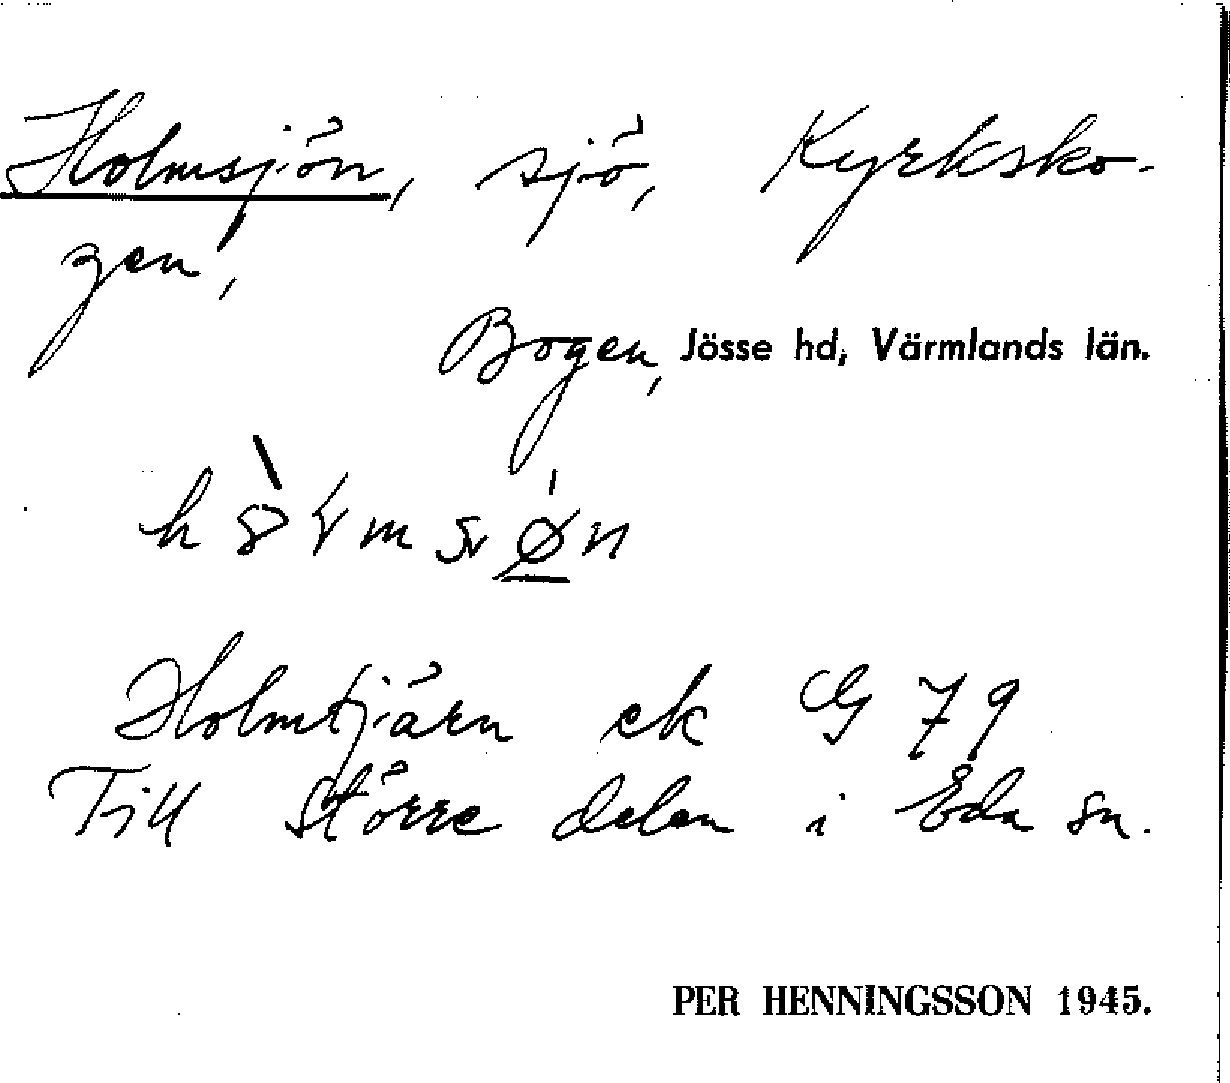 Holmsjön, sjö, Kyrksko-
gen,
Bogen, Jösse hd, Värmlands län.
Holmtjärn ek G 79
Till större delen i Eda sn.
PER HENNINGSSON 1945.